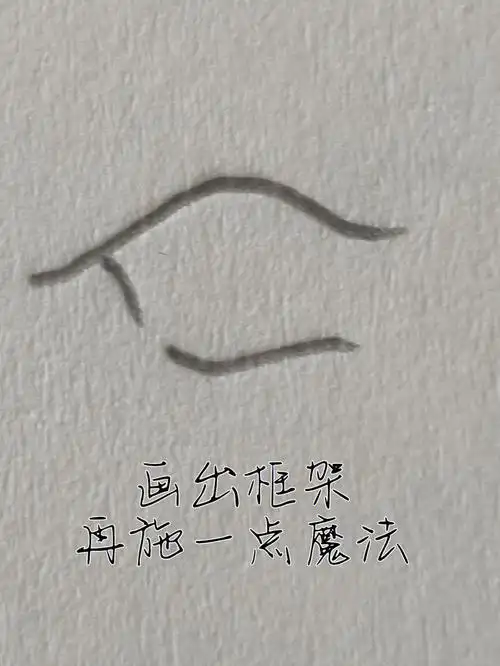 画出框架
再施一点魔法